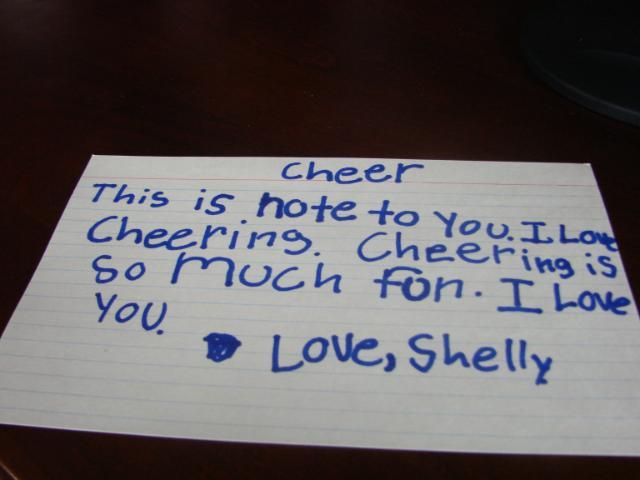 cheer
This is note to You. I Love
Cheering. Cheering is
so much fun. I Love
You.
Love, Shelly